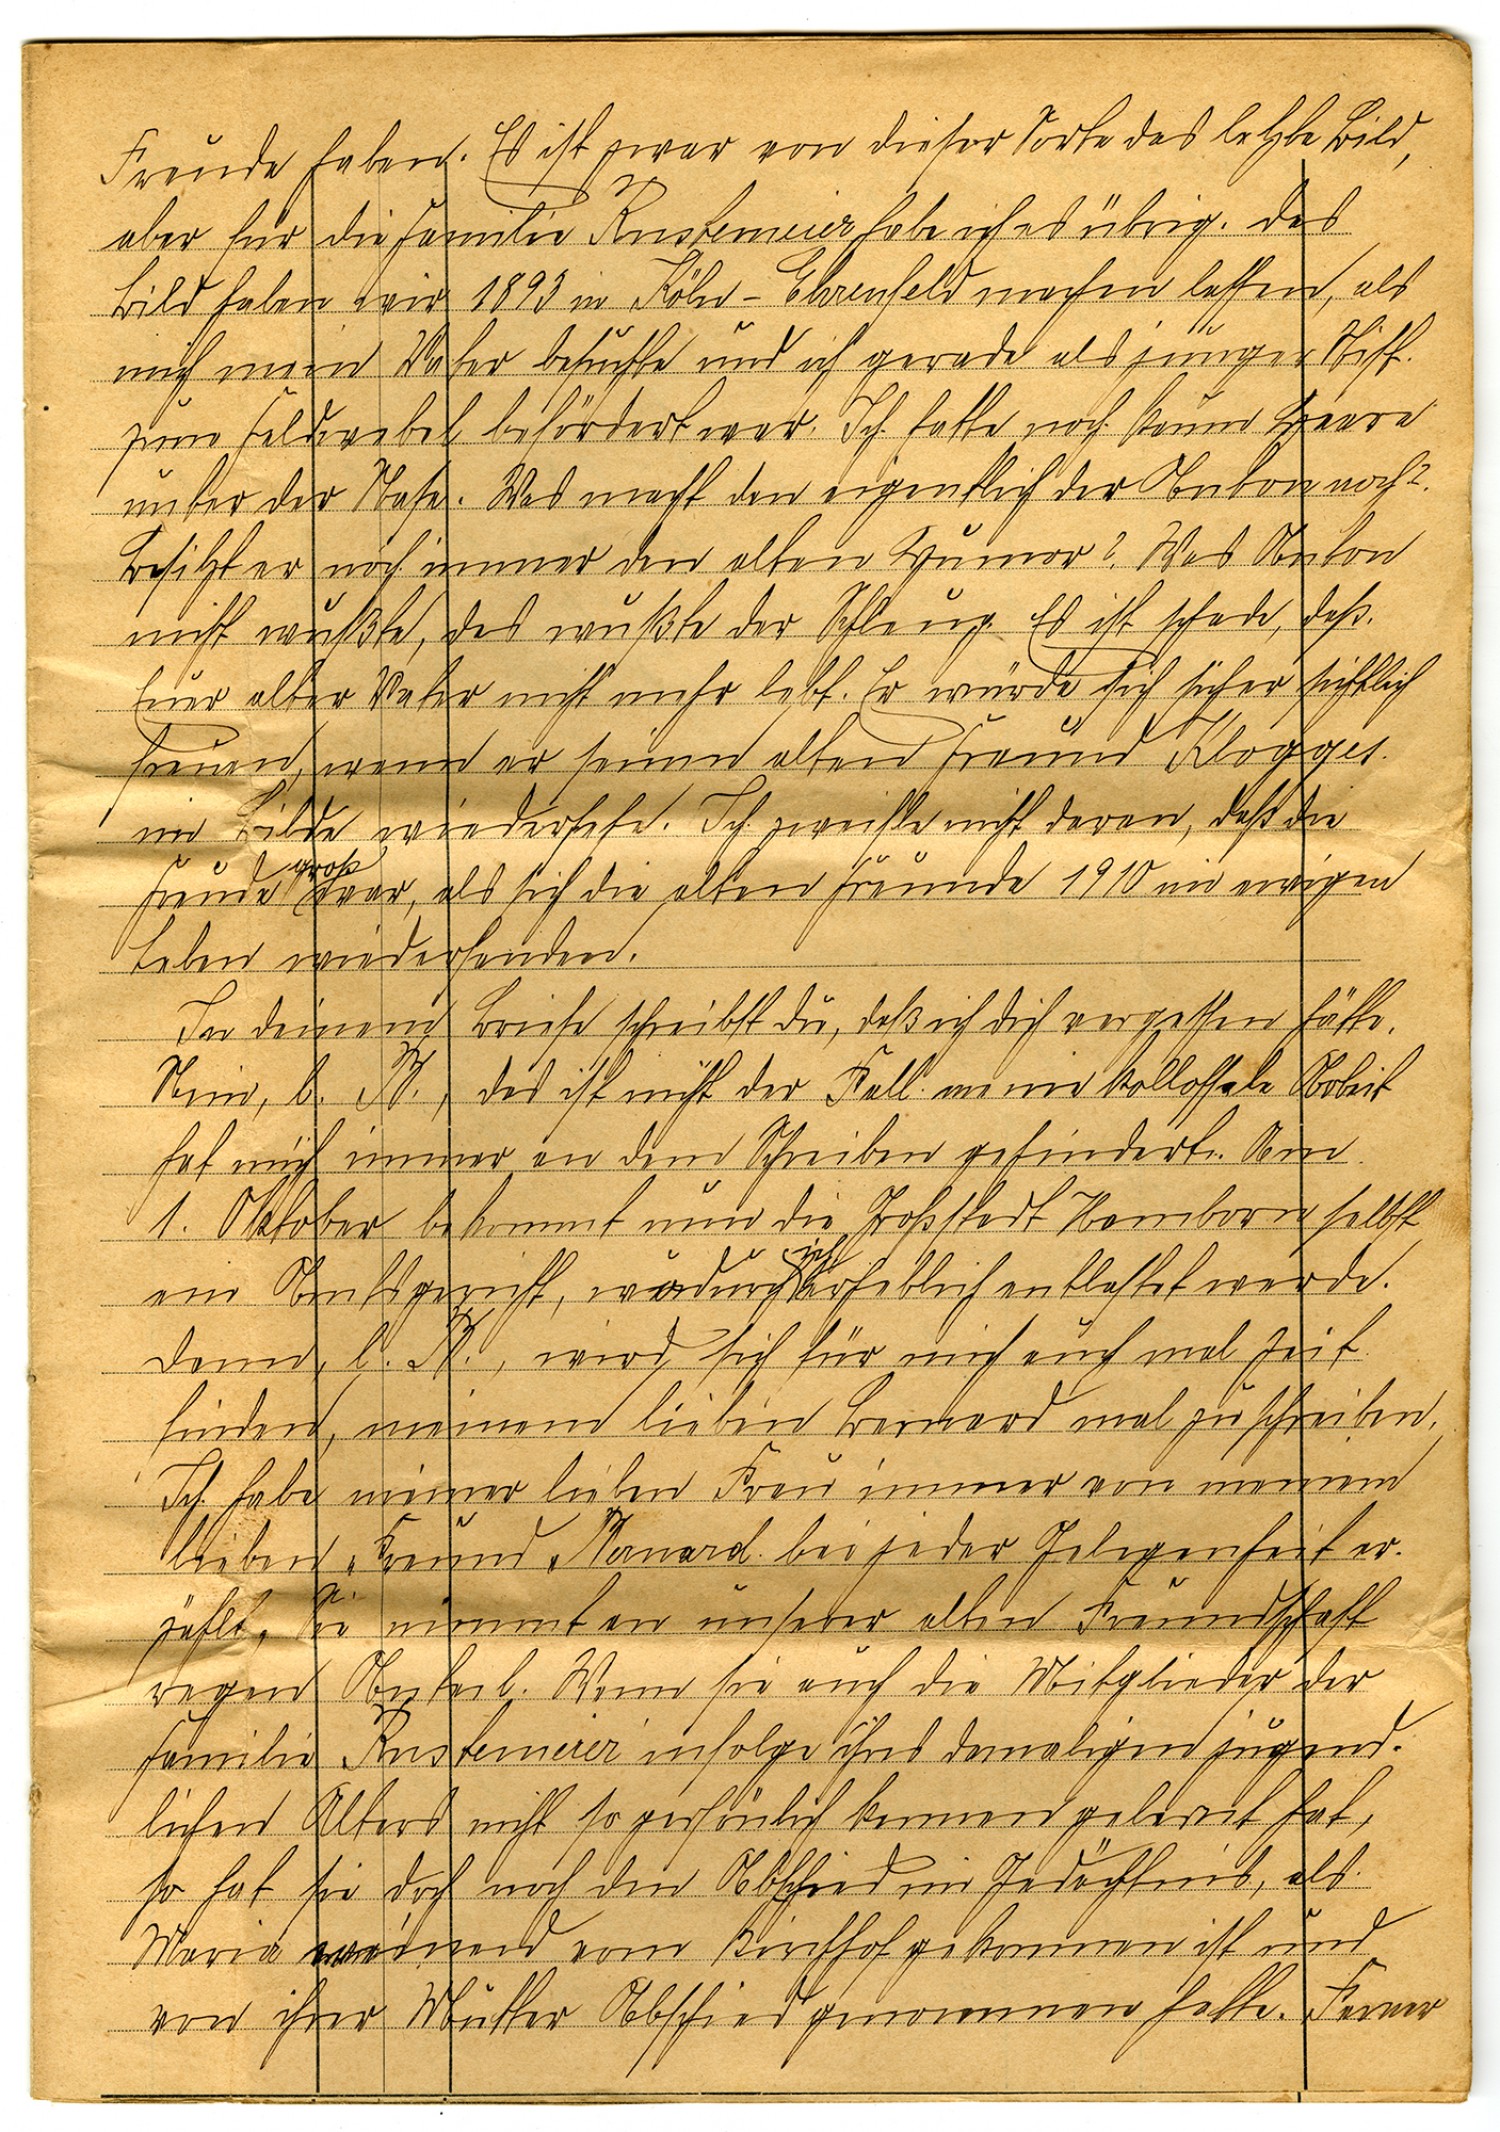 Freude haben. Es ist zwar von dieser Sorte das letzte Bild,
aber für die Familie Rustemeier habe ich es übrig. Das
Bild haben wir 1893 in Köln-Ehrenfeld machen lassen, als
mich mein Vater besuchte und ich gerade als junger
zum Feldwebel befördert war. Ich hatte noch kaum Haare
unter der Nase. Was macht den eigentlich der Anton noch?
Besitzt er noch immer den alten Humor? Was Anton
nicht wußte, das wußte der Es ist schade, daß
Euer alter Vater nicht mehr lebt. Er würde sich sicher sichtlich
freuen, wenn er seinen alten Freund Klogges
im Bilde wiedersehe. Ich zweifle nicht daran, daß die
Freude groß war, als sich die alten Freunde 1910 im ewigen
Leben wiederfanden.
In deinem Briefe schreibst du, daß ich dich vergessen hätte.
Nein, l. B., das ist nicht der Fall. meine kollossale Arbeit
hat mich immer an dem Schreiben gehindert. Am
1. Oktober bekommt nun die Großstadt Hamborn selbst
ein Amtsgericht, wodurch ich erheblich entlastet werde.
Dann, l. B., wird sich für mich auch mal Zeit
finden, meinem lieben Bernard mal zu schreiben.
Ich habe meiner lieben Frau immer von meinem
lieben Freund Bernard bei jeder Gelegenheit er-
zählt. Sie nimmt an unserer alten Freundschaft
regen Anteil. Wenn sie auch die Mitglieder der
Familie Rustemeier infolge ihres damaligen jugend-
lichen Alters nicht so persönlich kennen gelernt hat,
so hat sie doch noch den Abschied im Gedächtnis, als
Maria weinend vom Kirchhof gekommen ist und
von ihrer Mutter Abschied genommen hatte. Ferner